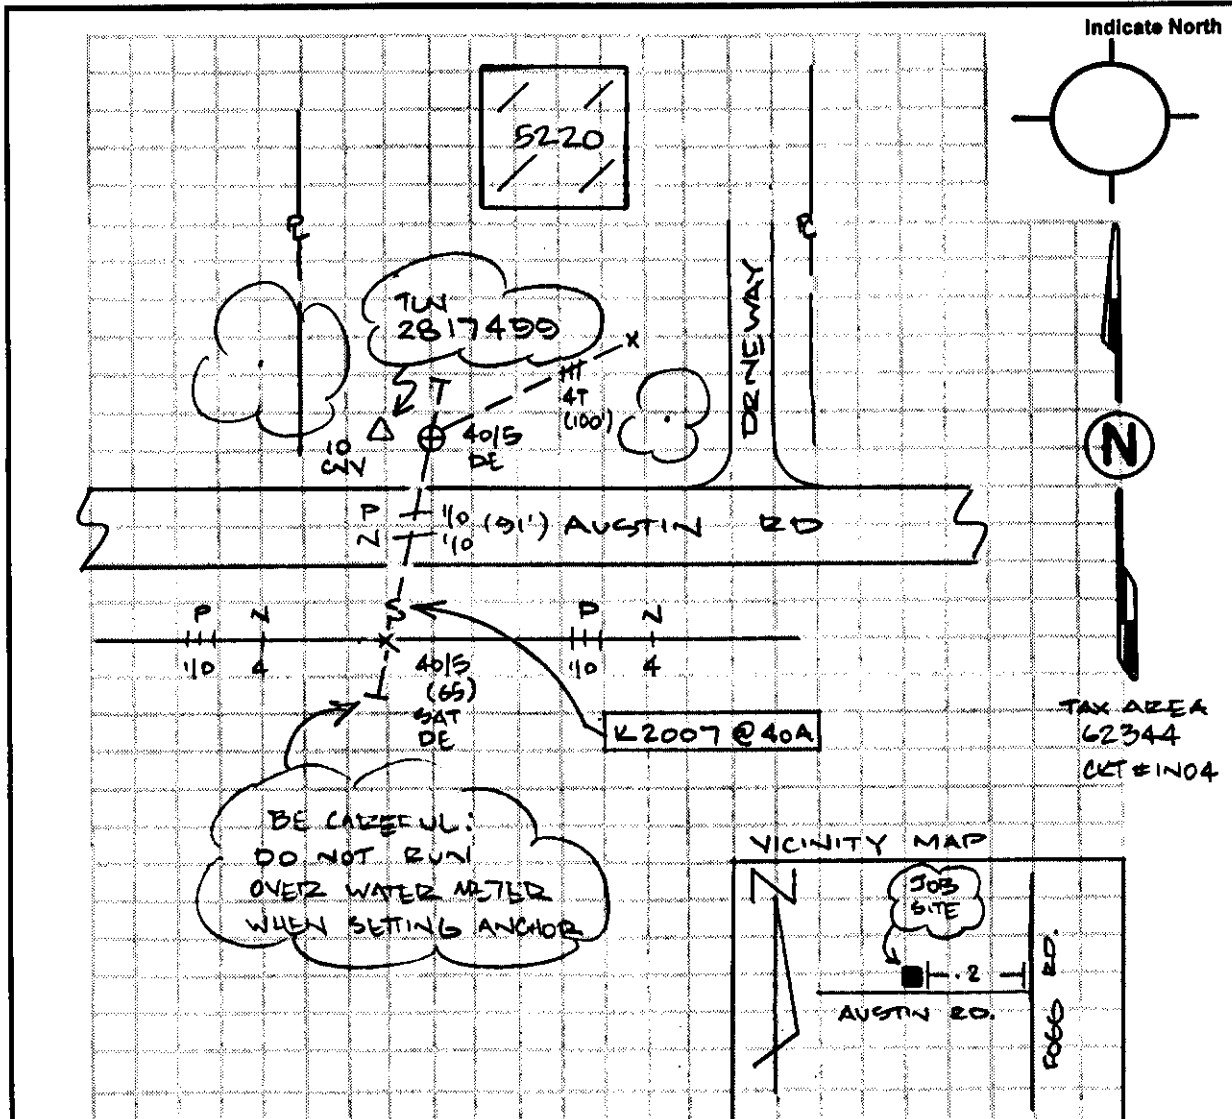 Indicate North
5220
PL
PL
TLN
2817499
DRIVEWAY
T
4T
(100')
40/5
DE
10
N
P
1/0
(91') AUSTIN RD
N
1/0
S
P
N
P
N
1/0
4
40/5
(65)
SAT
DE
1/0
4
K2007 @ 40A
TAX AREA
62344
CKT # IN04
BE CAREFUL:
DO NOT RUN
OVER WATER METER
WHEN SETTING ANCHOR
VICINITY MAP
N
JOB
SITE
.2
AUSTIN RD.
FOGG RD.